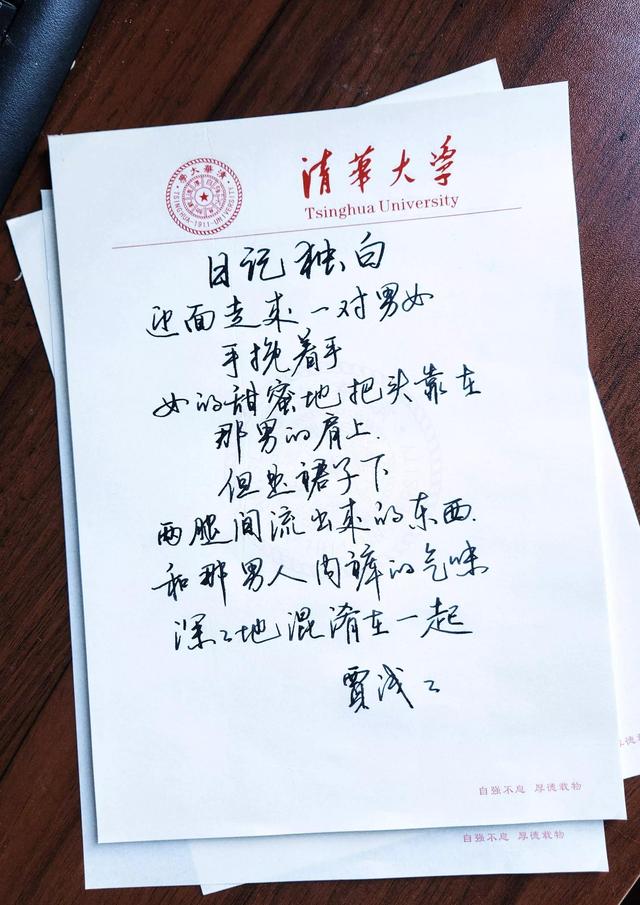 清華大學
Tsinghua University
清華大學
TSINGHUA UNIVERSITY
-1911-
日记独白
迎面走来一对男女
手挽着手
女的甜蜜地把头靠在
那男的肩上.
但是裙子下
两腿间流出来的东西.
和那男人内裤的气味
深々地混淆在一起
贾浅々
自强不息 厚德载物
自强不息 厚德载物